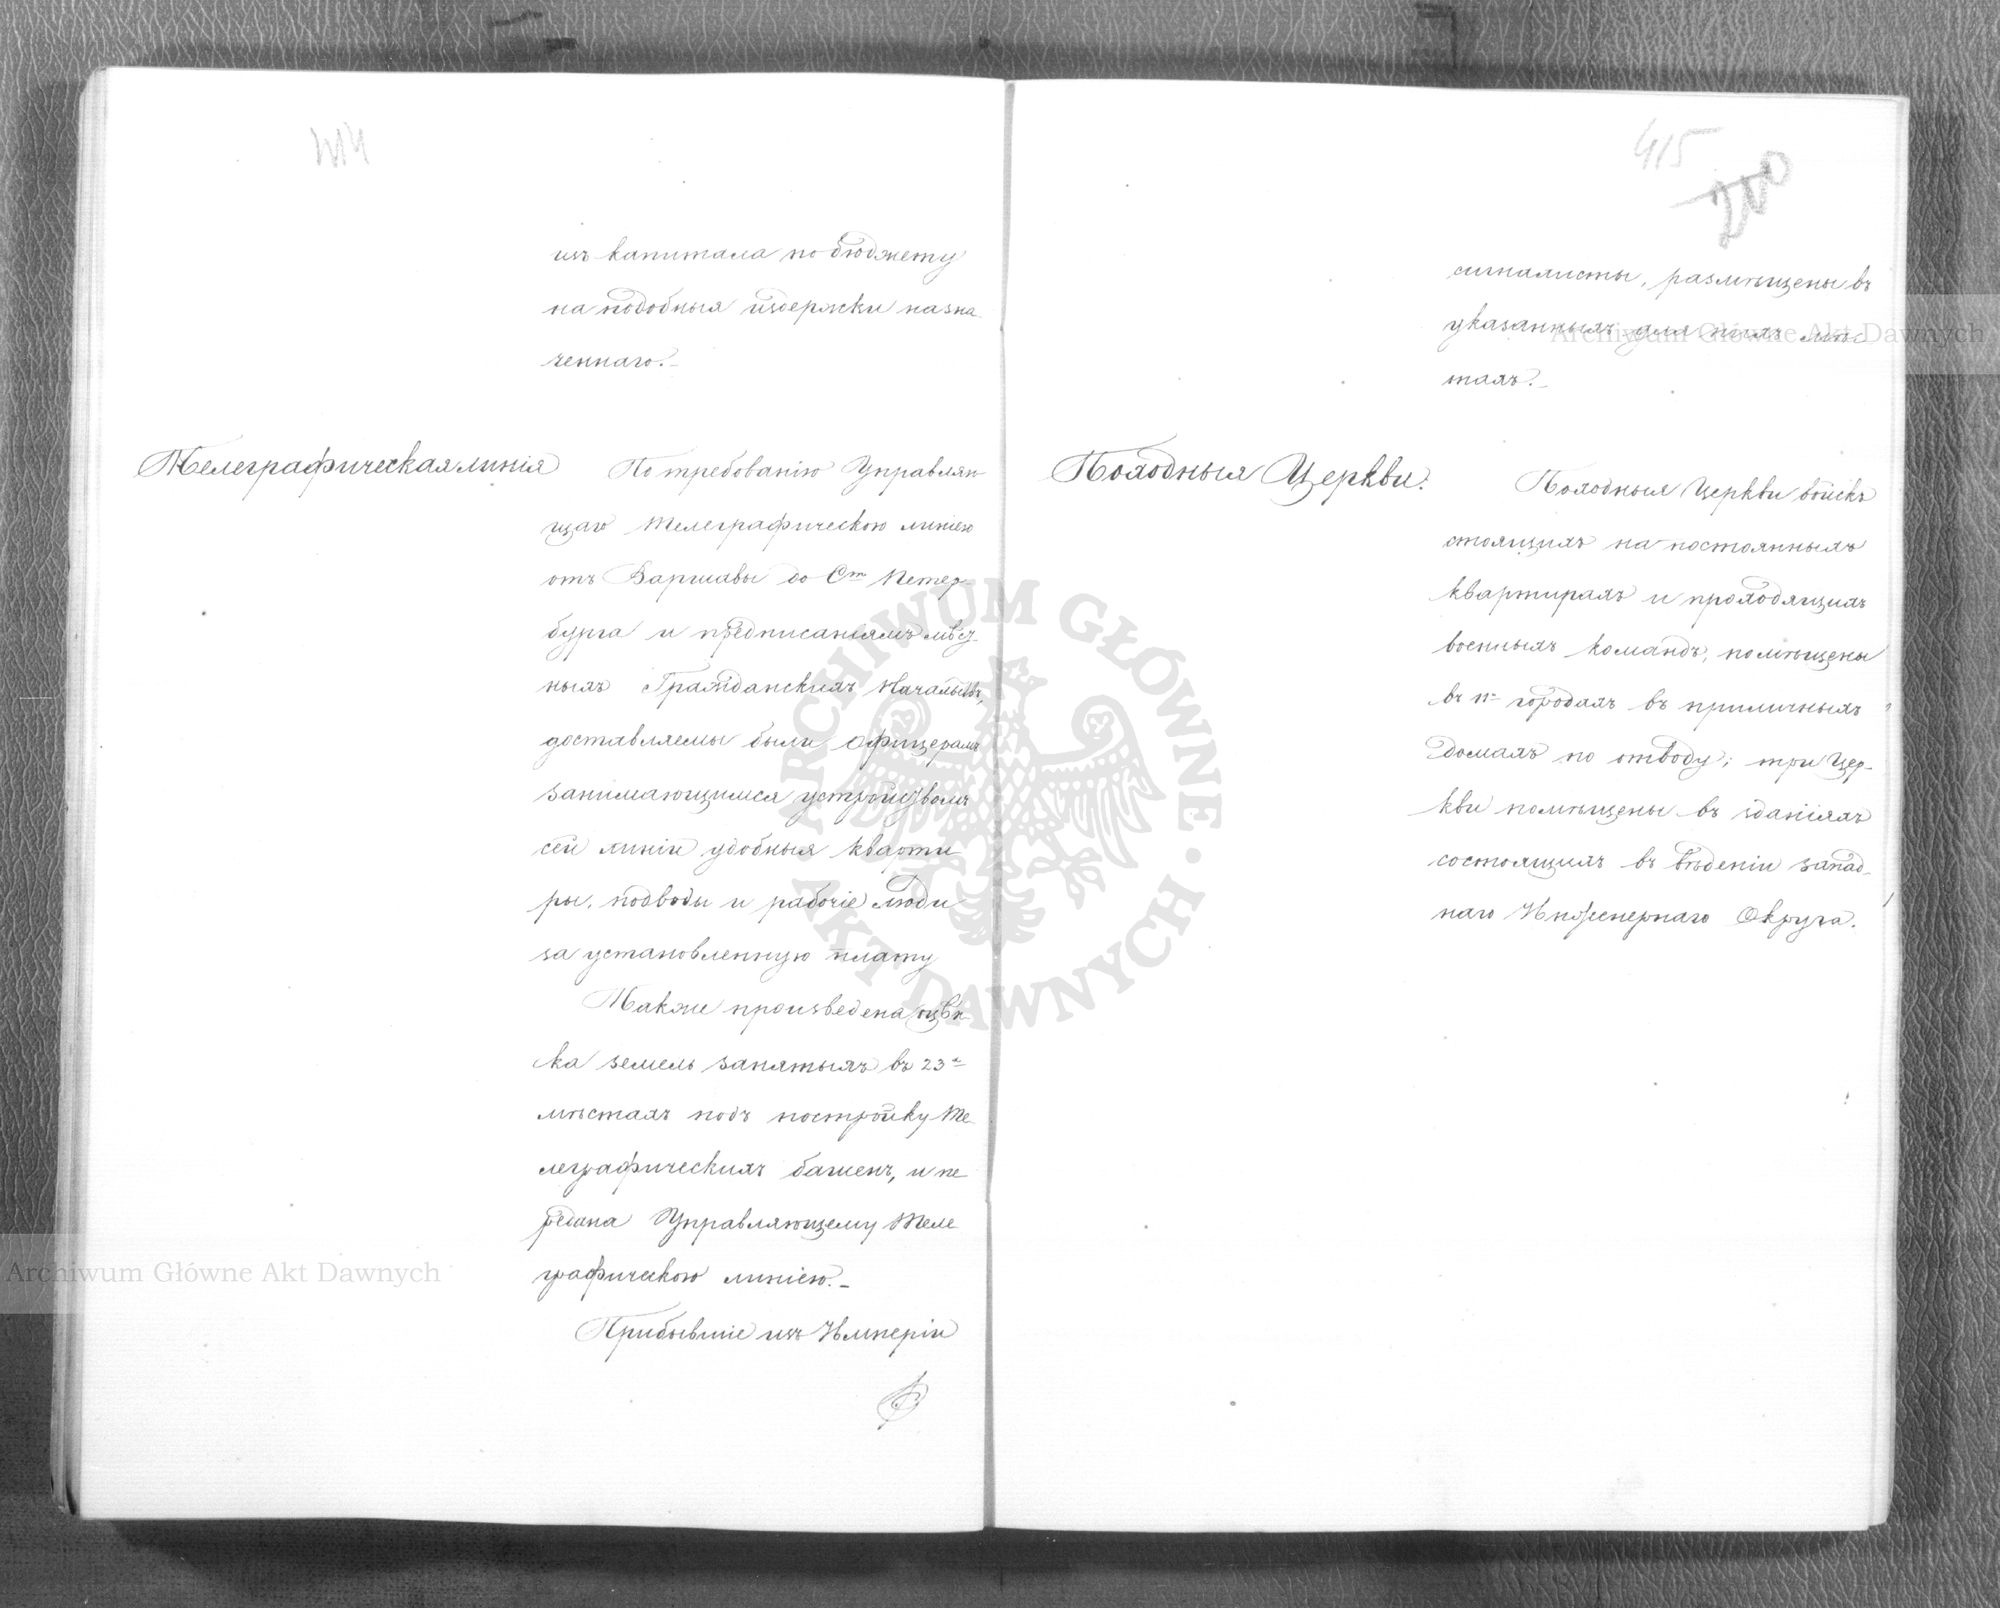 414
изъ капитала по бюджету
на подобныя издержки назна
ченнаго.
Телеграфическая линія
По требованію Управляю
щаго Телеграфическою линіею
отъ Варшавы до Ст Петер-
бурга и предписаніямъ мѣст-
ныхъ Гражданскихъ Начальствъ,
доставляемы были Офицерамъ
занимающимся устройствомъ
сей линіи удобныя кварти
ры, подводы и рабочіе люди
за установленную плату
Также произведена оцѣн-
ка земель занятыхъ въ 23х
мѣстахъ подъ постройку Те-
леграфическихъ башенъ, и пе
редана Управляющему Теле
графическою линіею.
Прибывшіе изъ Имперіи
415
200
сигналисты, размѣщены въ
указанныхъ для нихъ мѣс
тахъ.
Походныя Церкви.
Походныя Церкви войскъ
стоящихъ на постоянныхъ
квартирахъ и проходящихъ
военныхъ командъ, помѣщены
въ городахъ въ приличныхъ
домахъ по отводу; три Цер-
кви помѣщены въ зданіяхъ
состоящихъ въ вѣденіи запад-
наго Инженернаго Округа.
ARCHIWUM GŁÓWNE AKT DAWNYCH
Archiwum Główne Akt Dawnych
Archiwum Główne Akt Dawnych